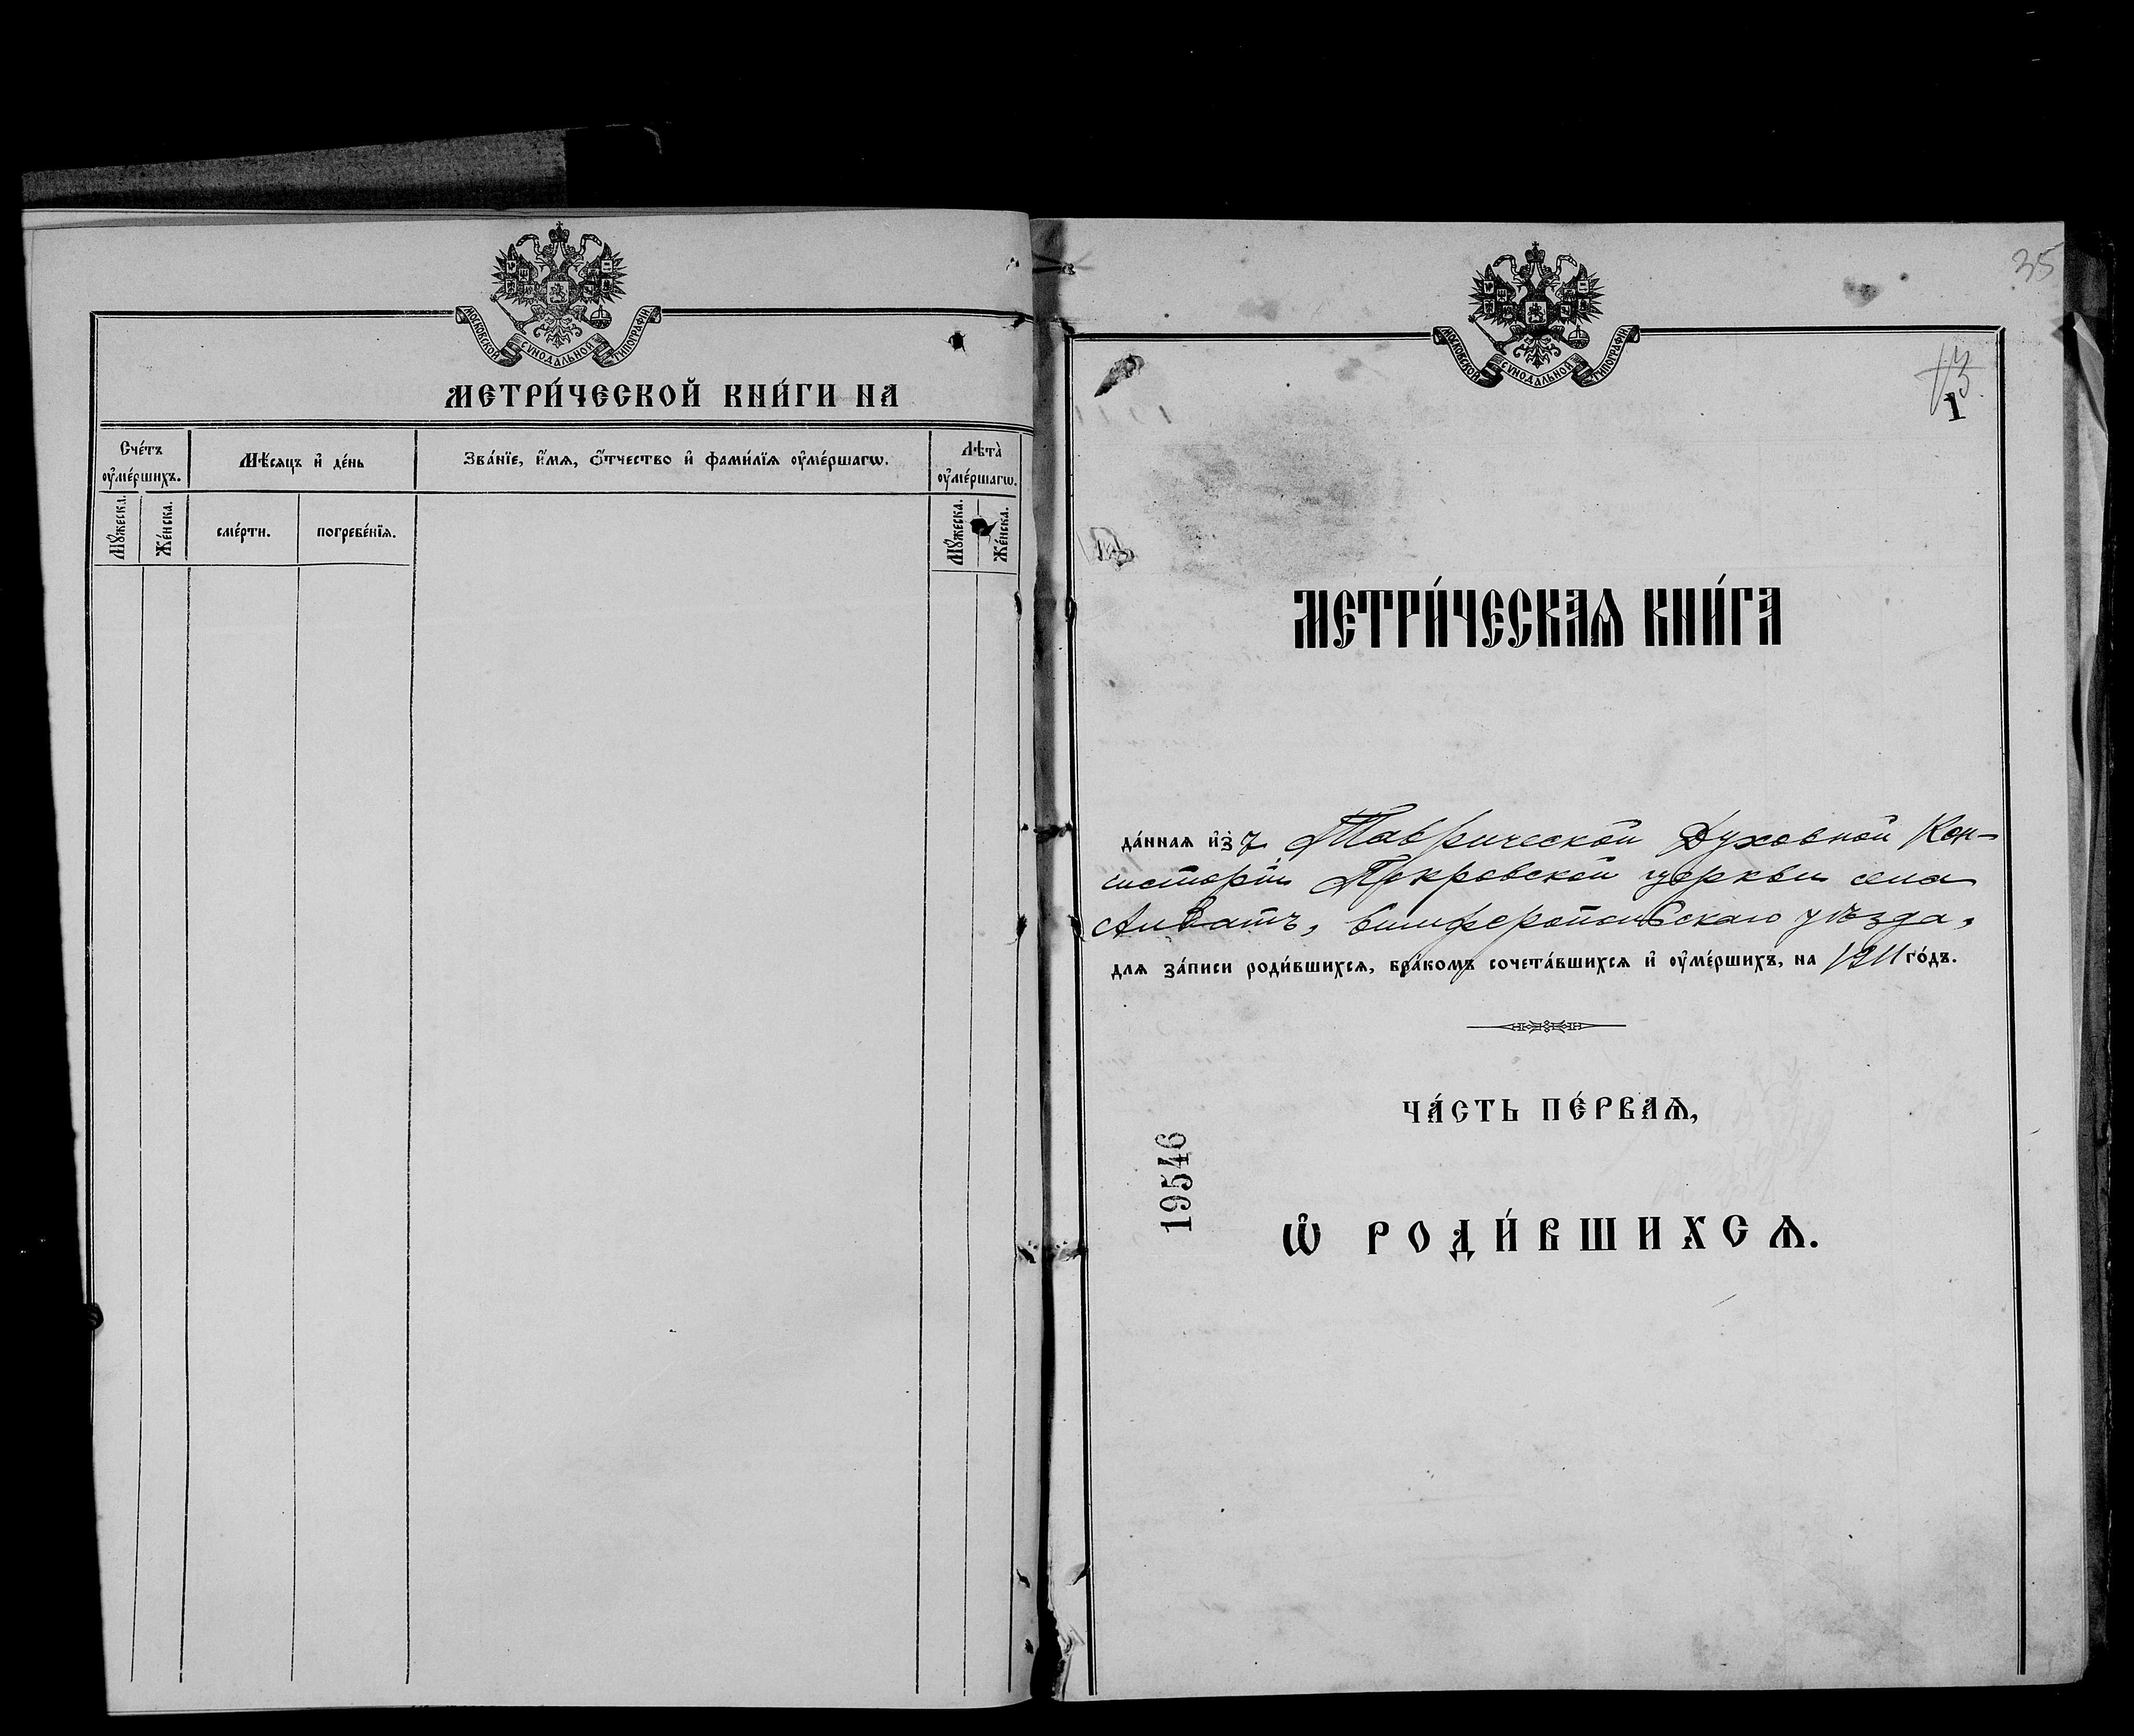 МОСКОВСКОЙ СѴНОДАЛЬНОЙ ТИПОГРАФІИ
МЕТРИ́ЧЕСКОЙ КНИ́ГИ НА
Сче́тъ ᲂу҆ме́ршихъ.
Мѣ́сяцъ и҆ де́нь
Зва́нїе, и҆́мя, ѻ҆́тчество и҆ фами́лїя ᲂу҆ме́ршагѡ.
Лѣта̀ ᲂу҆ме́ршагѡ.
Мꙋжеска.
Же́нска.
сме́рти.
погребе́нїя.
Мꙋжеска.
Же́нска.
35
МОСКОВСКОЙ СѴНОДАЛЬНОЙ ТИПОГРАФІИ
13
1
МЕТРИ́ЧЕСКАѦ КНИ́ГА
да́нная и҆зъ Таврической Духовной Кон-
систоріи Покровской церкви села
Симферопольскаго уѣзда,
для за́писи роди́вшихся, бра́комъ сочета́вшихся и҆ ᲂу҆ме́ршихъ, на 1911 го́дъ.
ЧА́СТЬ ПЕ́РВАѦ,
19546
Ѡ҆ РОДИ́ВШИХСѦ.